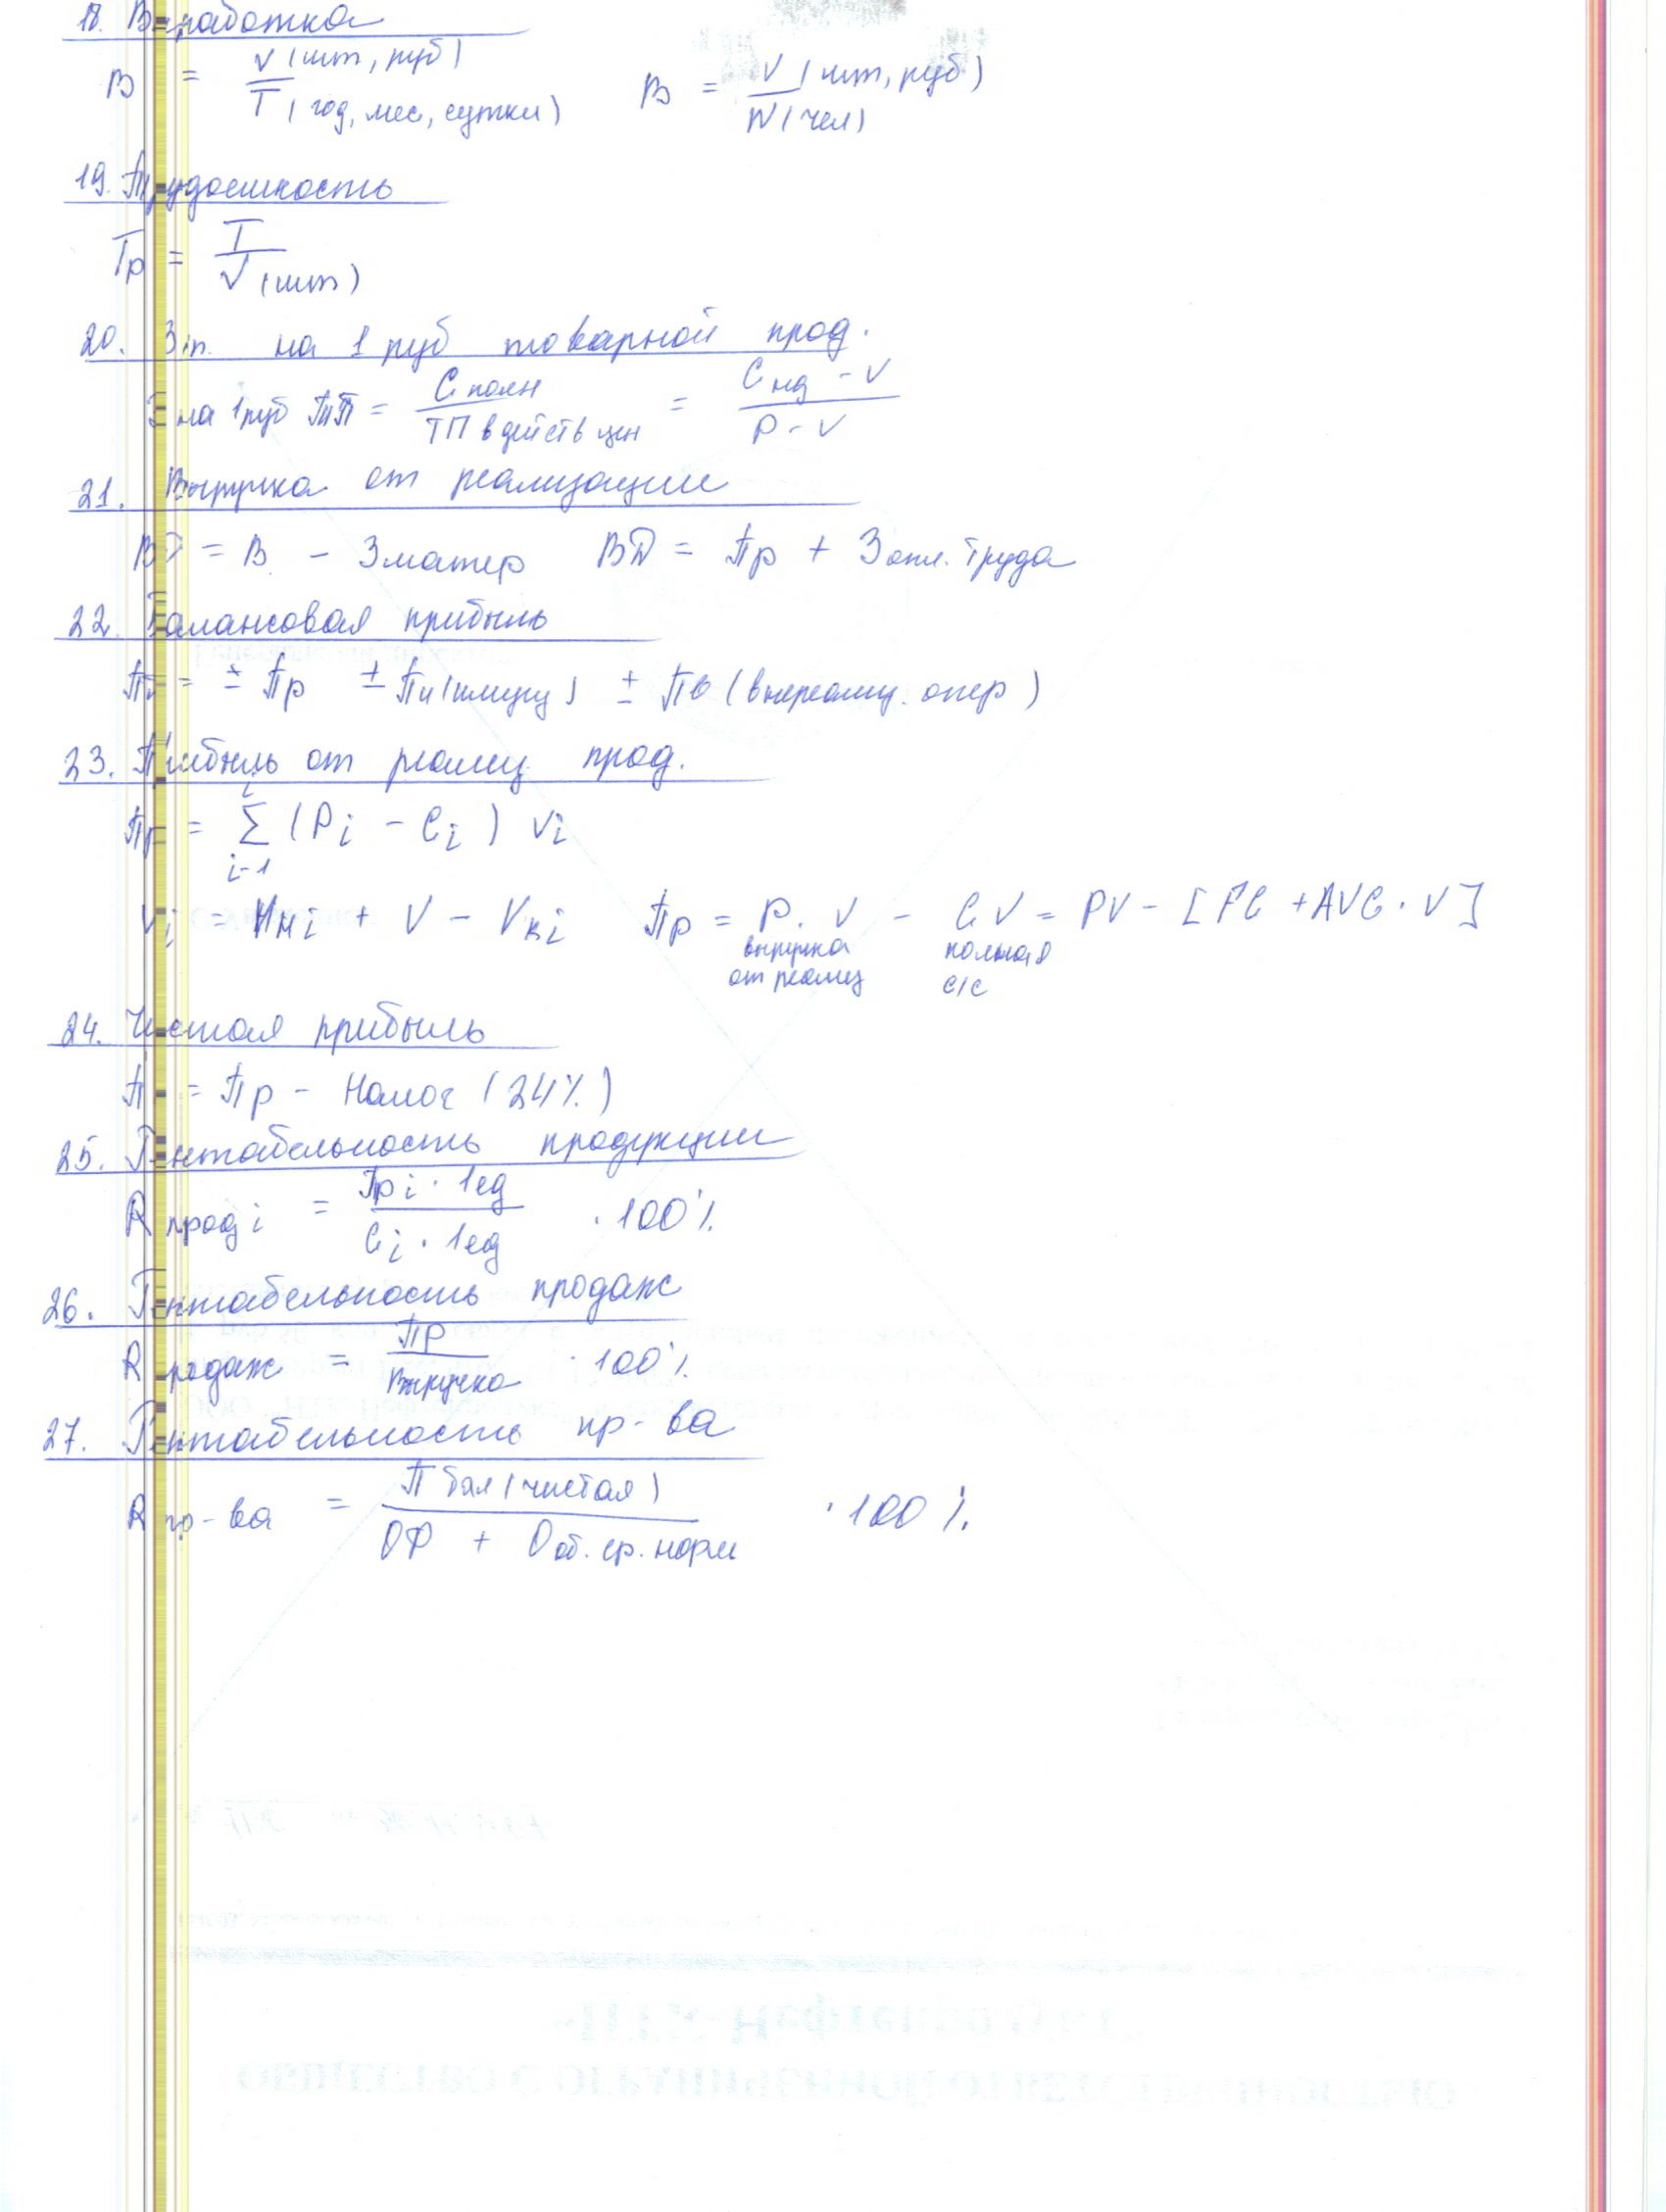 18. Выработка
В = V (шт, руб) / T (год, мес, сутки)   В = V (шт, руб) / N (чел)
19. Трудоемкость
Тр = T / V (шт)
20. Зат. на 1 руб товарной прод.
З на 1 руб ТП = С полн / ТП в действ цен = С ед - V / P - V
21. Выручка от реализации
ВД = В - З матер   ВД = Пр + З опл. труда
22. Балансовая прибыль
Пб = ± Пр ± Пи (имущ) ± Пв (внереализ. опер)
23. Прибыль от реализ прод.
Пр = Σ i-1 i (Pi - Ci) Vi
Vi = Vнi + V - Vкi   Пр = P · V - C V = PV - [FC + AVC · V]
выручка   полная
от реализ   с/с
24. Чистая прибыль
П = Пр - Налог (24%)
25. Рентабельность продукции
R прод i = Пр i · 1ед / Ci · 1ед · 100%
26. Рентабельность продаж
R продаж = ПР / Выручка · 100%
27. Рентабельность пр-ва
R пр-ва = П бал (чистая) / ОФ + О об. ср. норм · 100%